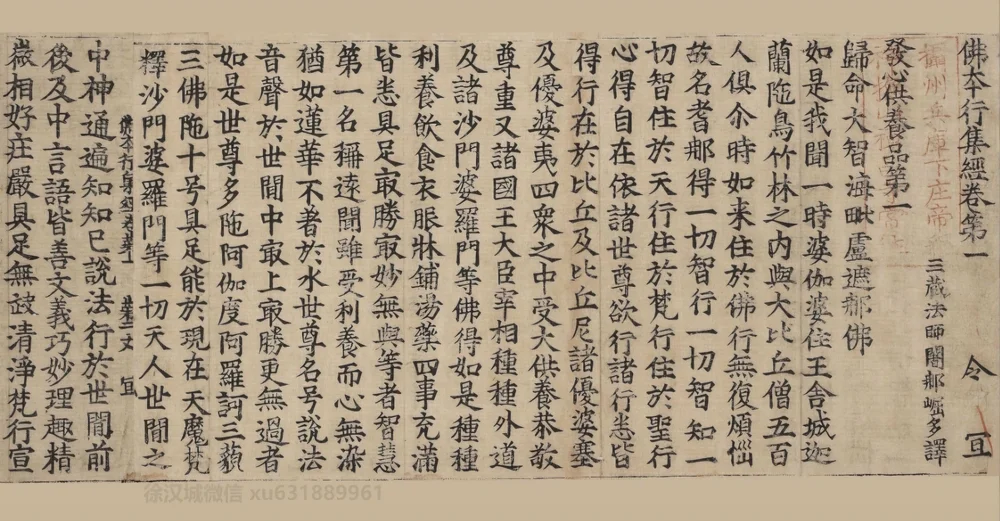 佛本行集經卷第一 令 冝
州兵庫下庄帝
三藏法師闍那崛多譯
發心供養品第一
歸命大智海毗盧遮那佛
如是我聞一時婆伽婆住王舍城迦
蘭陁鳥竹林之内與大比丘僧五百
人俱尒時如来住於佛行無復煩惱
故名耆那得一切智行一切智知一
切智住於天行住於梵行住於聖行
心得自在依諸世尊欲行諸行悉皆
得行在於比丘及比丘尼諸優婆塞
及優婆夷四衆之中受大供養恭敬
尊重又諸國王大臣宰相種種外道
及諸沙門婆羅門等佛得如是種種
利養飲食衣服牀鋪湯藥四事充滿
皆悉具足㝡勝㝡妙無與等者智慧
第一名稱遠聞雖受利養而心無染
猶如蓮華不著於水世尊名号說法
音聲於世間中㝡上㝡勝更無過者
如是世尊多陁阿伽度阿羅訶三藐
三佛陁十号具足能於現在天魔梵
釋沙門婆羅門等一切天人世間之
佛本行集經卷第一 第二丈 冝
中神通遍知知已說法行於世間前
後及中言語皆善文義巧妙理趣精
微相好庄嚴具足無缺清淨梵行宣
徐汉城微信 xu631889961